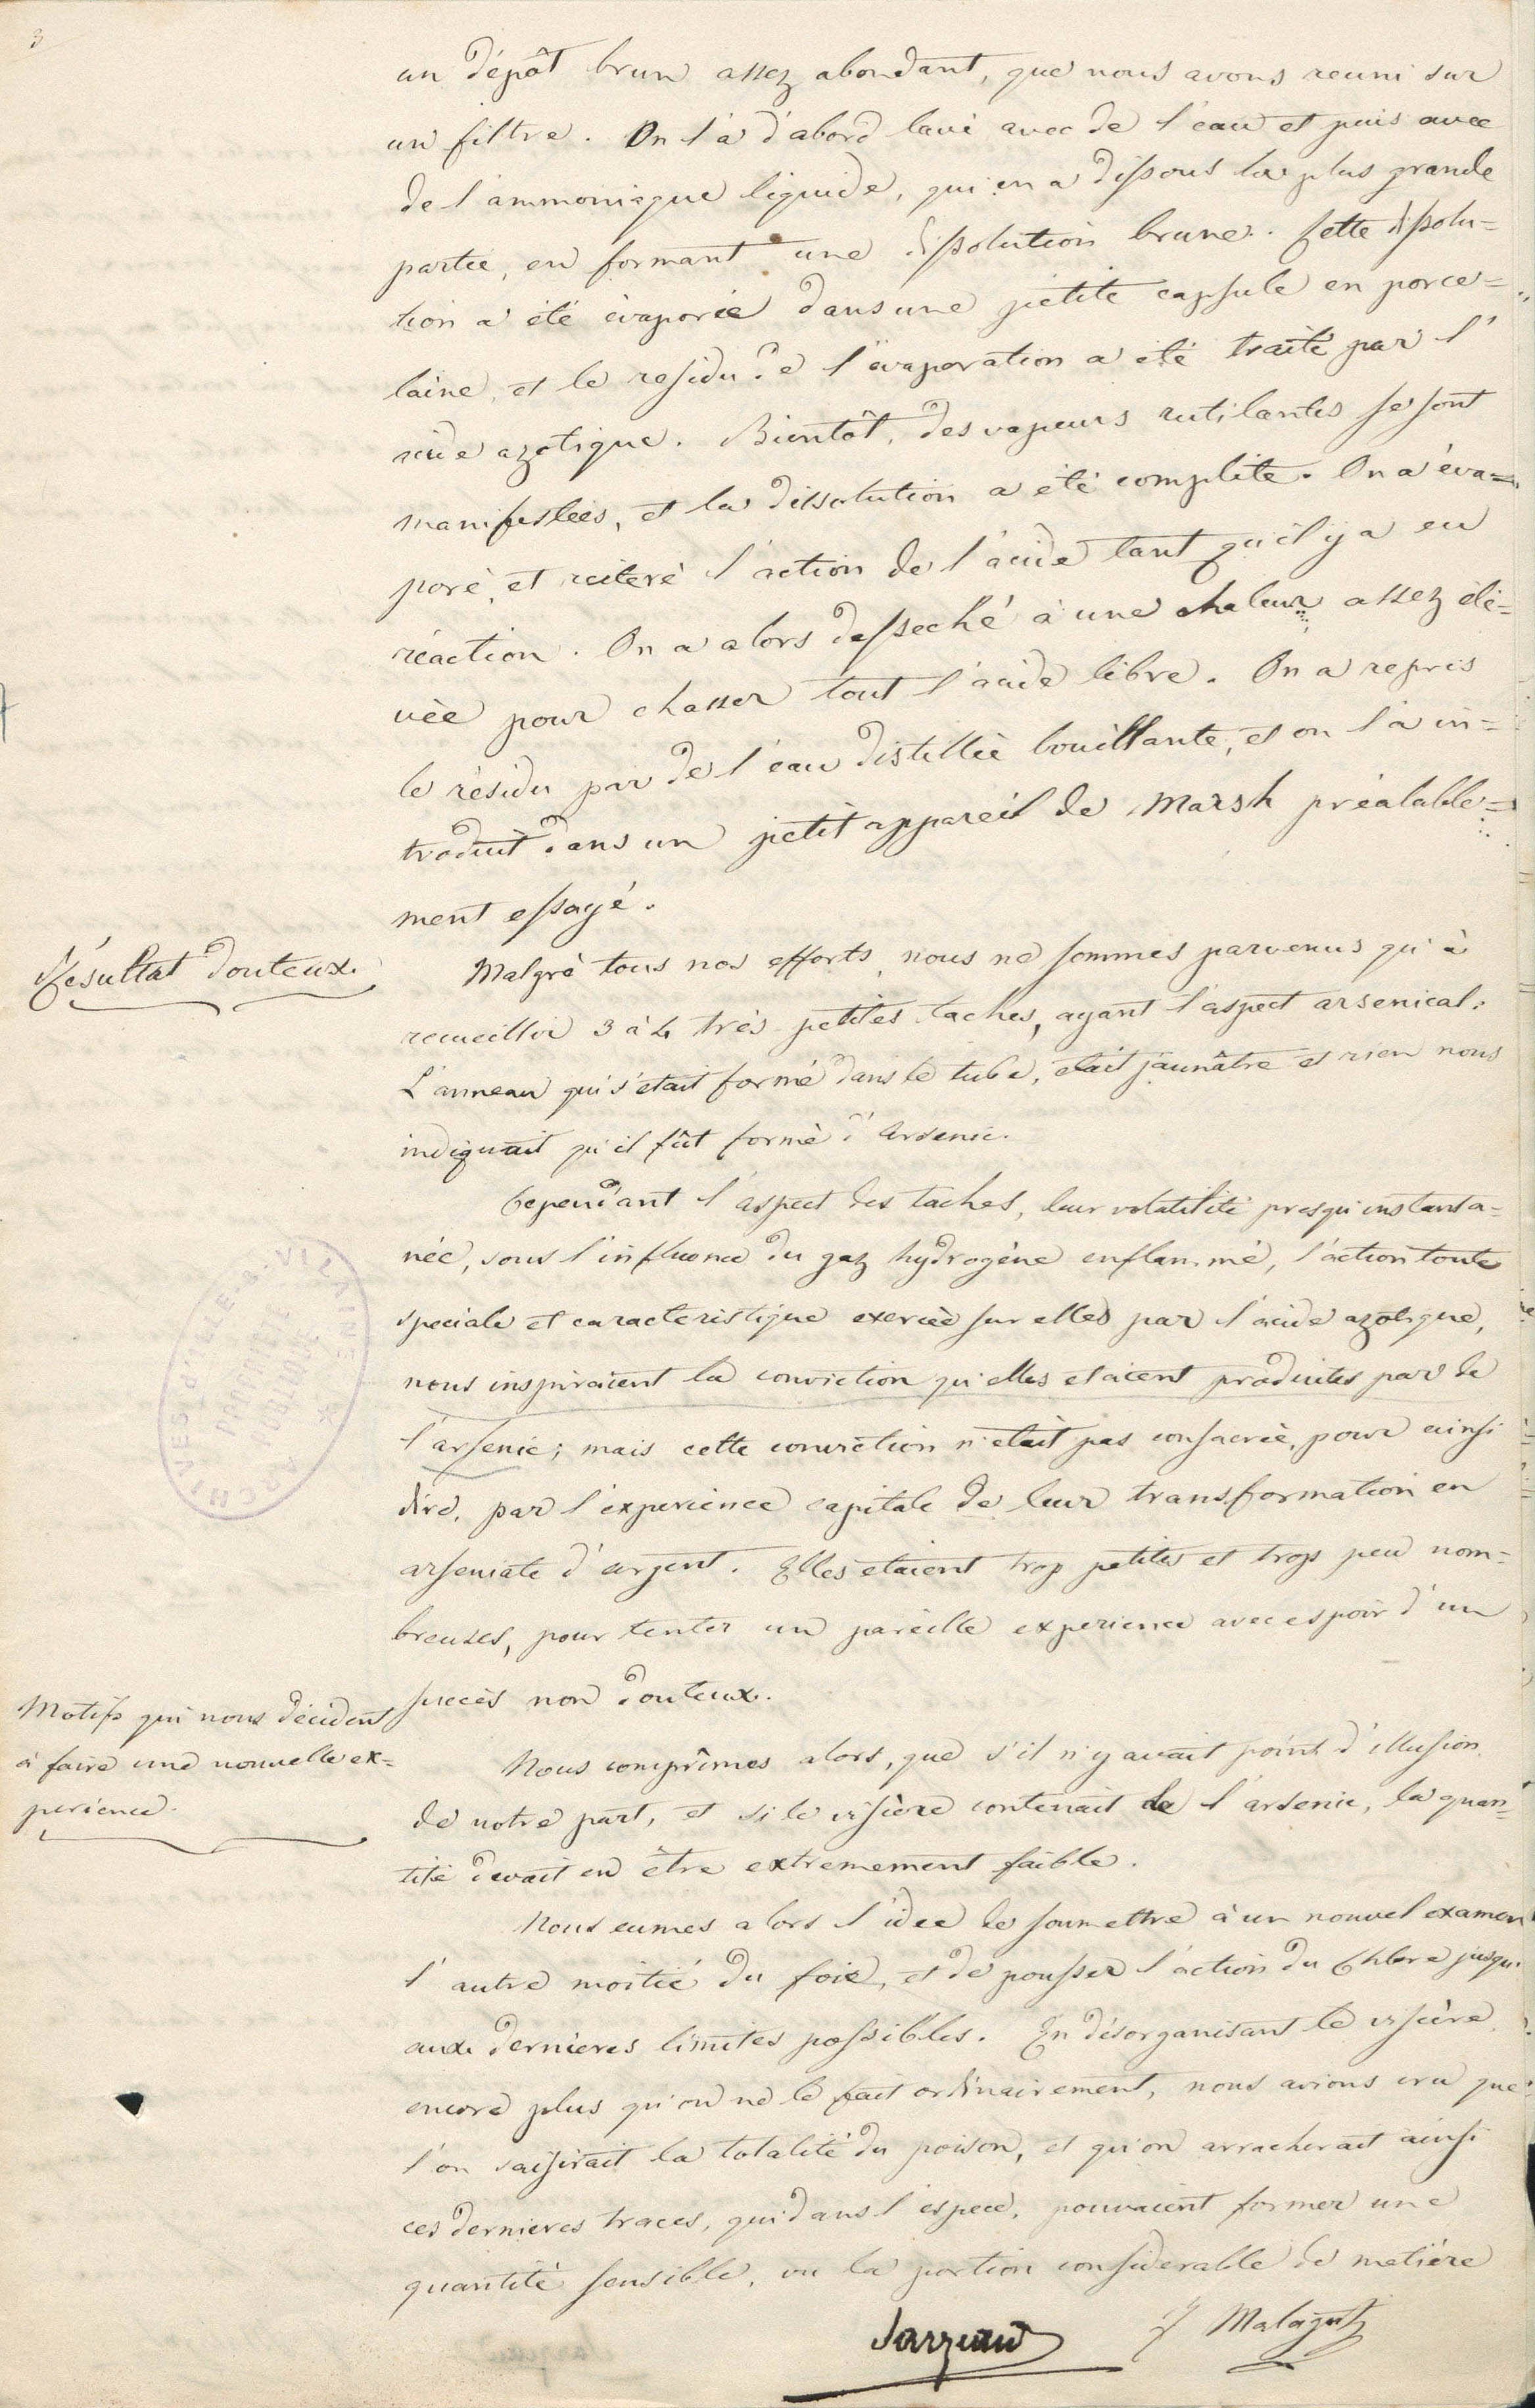 3
un dépôt brun assez abondant, que nous avons reuni sur
un filtre. On l'a d'abord lavé avec de l'eau et puis avec
de l'ammoniaque liquide, qui en a dissous la plus grande
partie, en formant une dissolution brune. Cette dissolu=
tion a été évaporée dans une petite capsule en porce=
laine, et le residu de l'évaporation a été traité par l'
acide azotique. Bientôt, des vapeurs rutilantes se sont
manifestées, et la dissolution a été complète. On a éva=
poré, et reiteré l'action de l'acide tant qu'il y a eu
réaction. On a alors desseché à une chaleur assez éle=
vée pour chasser tout l'acide libre. On a repris
le résidu par de l'eau distillée bouillante, et on l'a in=
troduit dans un petit appareil de Marsh préalable=
ment essayé.
Résultat douteux.
Malgré tous nos efforts, nous ne sommes parvenus qu'à
recueillir 3 à 4 très petites taches, ayant l'aspect arsenical.
L'anneau qui s'etait formé dans le tube, etait jaunâtre et rien nous
indiquait qu'il fût formé d'Arsenic.
Cependant l'aspect des taches, leur volatilité presqu'instanta=
née, sous l'influence du gaz hydrogène enflammé, l'action toute
speciale et caracteristique exercée sur elles par l'acide azotique,
nous inspiraient la conviction qu'elles etaient produites par de
l'arsenic; mais cette conviction n'etait pas consacrée, pour ainsi
dire, par l'experience capitale de leur transformation en
arseniate d'argent. Elles etaient trop petites et trop peu nom=
breuses, pour tenter un pareille experience avec espoir d'un
succès non douteux.
Motifs qui nous décident
à faire une nouvelle ex=
perience.
Nous comprîmes alors, que s'il n'y avait point d'illusion
de notre part, et si le viscère contenait de l'arsenic, la quan=
tité devait en être extremement faible.
Nous eumes alors l'idee de soumettre à un nouvel examen
l'autre moitié du foie, et de pousser l'action du Chlore jusqu'
aux dernieres limites possibles. En désorganisant le viscère
encore plus qu'on ne le fait ordinairement, nous avions cru que
l'on saisirait la totalité du poison, et qu'on arracherait ainsi
ces dernieres traces, qui dans l'espece, pouvaient former une
quantité sensible, vu la portion considerable de matière
Sarzeaud
J Malaguti
ARCHIVES d'ILLE-&-VILAINE